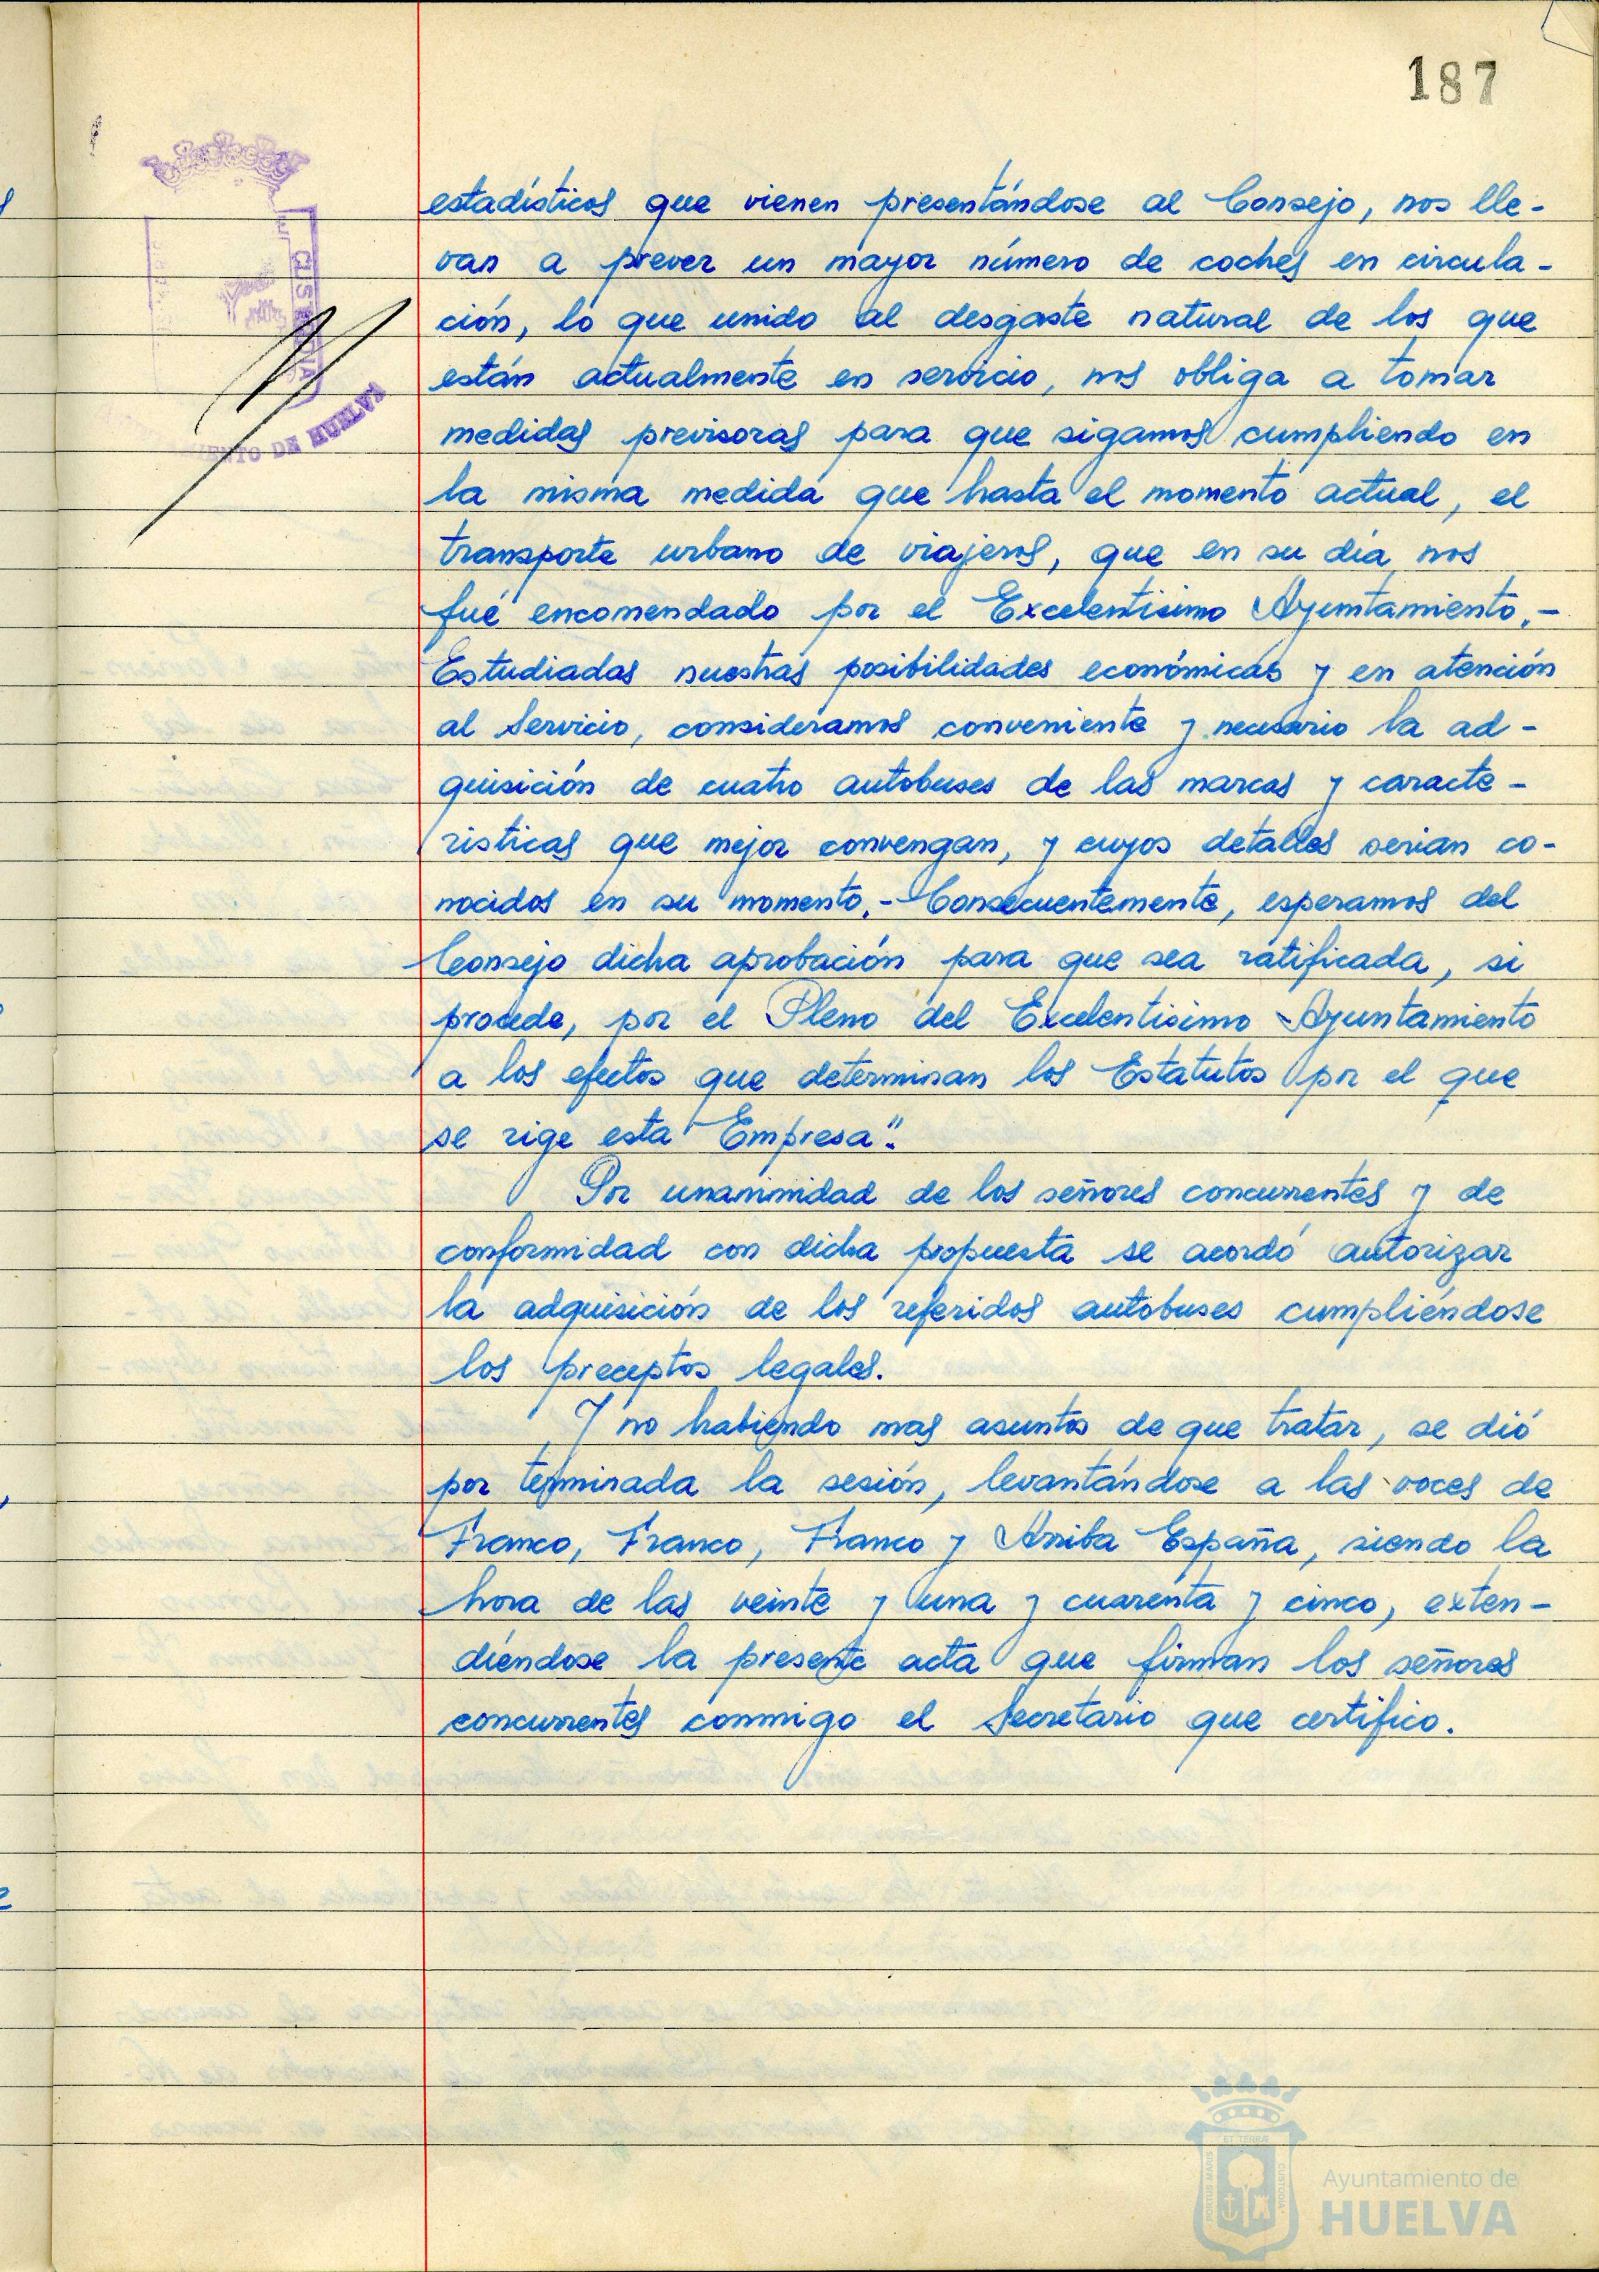 187
estadísticos que vienen presentándose al Consejo, nos lle-
van a prever un mayor número de coches en circula-
ción, lo que unido al desgaste natural de los que
están actualmente en servicio, nos obliga a tomar
medidas previsoras para que sigamos cumpliendo en
la misma medida que hasta el momento actual, el
transporte urbano de viajeros, que en su día nos
fué encomendado por el Excelentísimo Ayuntamiento.-
Estudiadas nuestras posibilidades económicas y en atención
al Servicio, consideramos conveniente y necesario la ad-
quisición de cuatro autobuses de las marcas y caracte-
risticas que mejor convengan, y cuyos detalles serian co-
nocidos en su momento.- Consecuentemente, esperamos del
Consejo dicha aprobación para que sea ratificada, si
procede, por el Pleno del Excelentisimo Ayuntamiento
a los efectos que determinan los Estatutos por el que
se rige esta Empresa".
Por unanimidad de los señores concurrentes y de
conformidad con dicha propuesta se acordó autorizar
la adquisición de los referidos autobuses cumpliéndose
los preceptos legales.
Y no habiendo mas asuntos de que tratar, se dió
por terminada la sesión, levantándose a las voces de
Franco, Franco, Franco y Arriba España, siendo la
hora de las veinte y una y cuarenta y cinco, exten-
diéndose la presente acta que firman los señores
concurrentes conmigo el Secretario que certifico.
CUSTODIA
AMIENTO DE HUELVA
PORTUS MARIS
ET TERRÆ
CUSTODIA
Ayuntamiento de
HUELVA